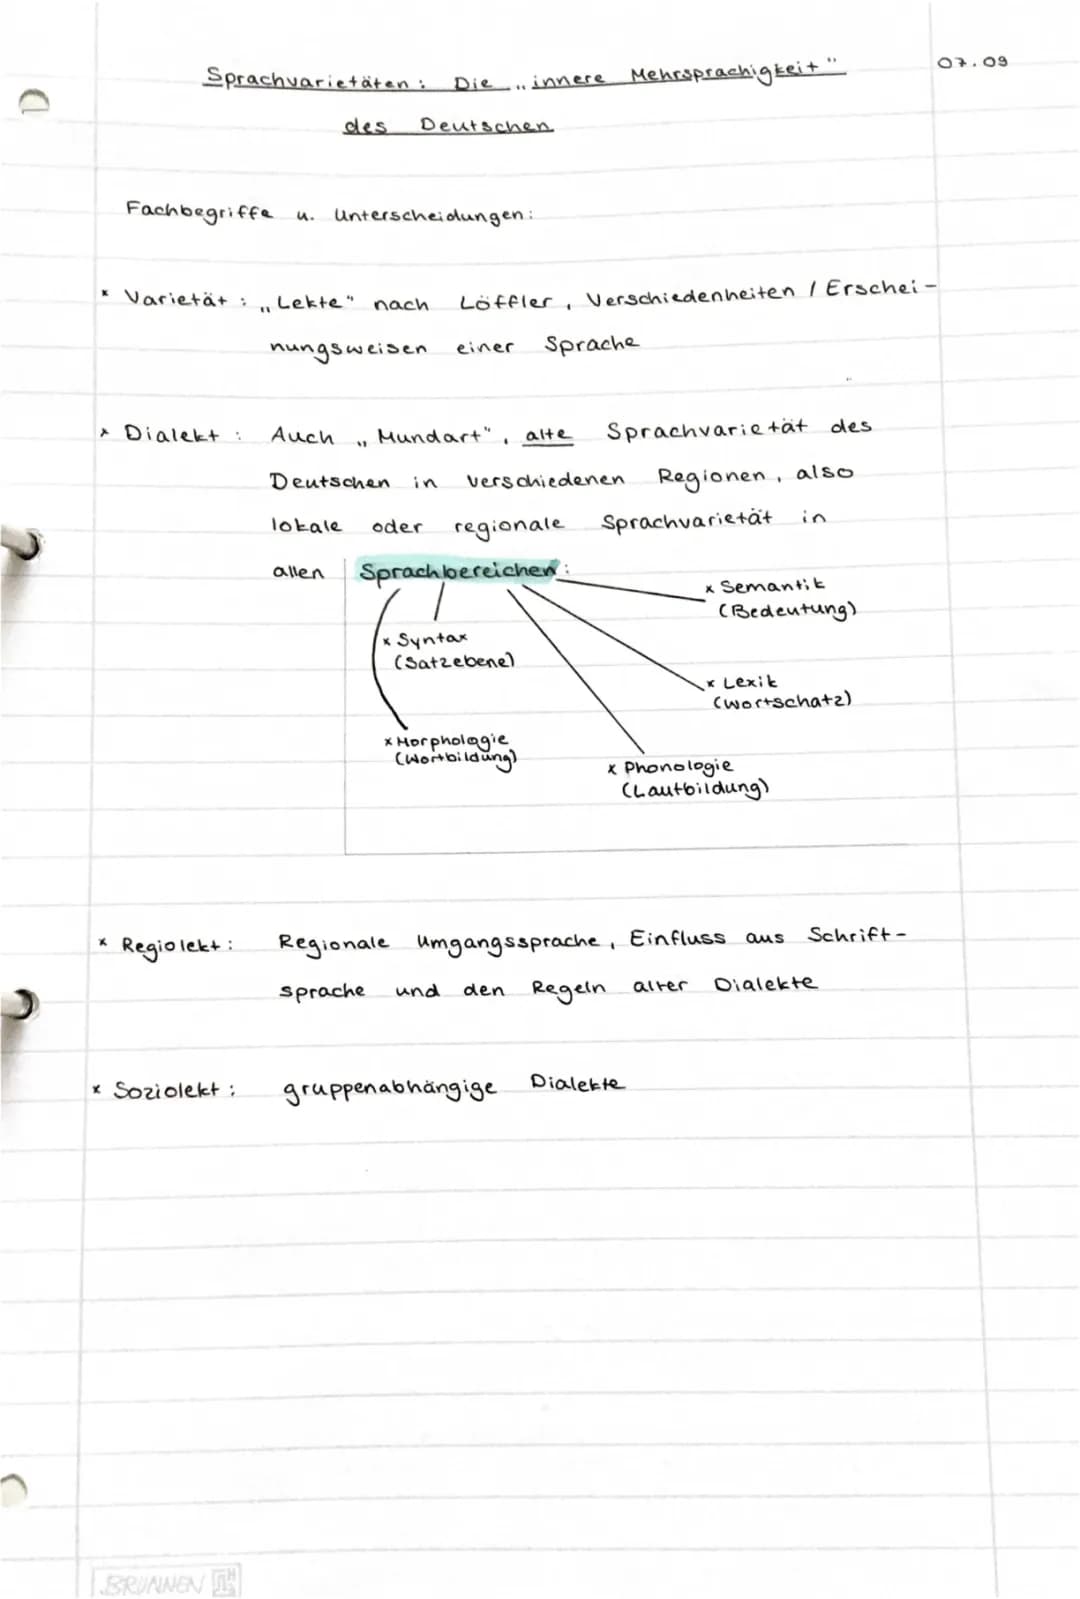 Sprachvarietäten: Die „innere Mehrsprachigkeit"
07.09
des Deutschen
Fachbegriffe u. Unterscheidungen:
x Varietät: „Lekte" nach Löffler, Verschiedenheiten / Erschei-
nungsweisen einer Sprache
x Dialekt: Auch „Mundart", alte Sprachvarietät des
Deutschen in verschiedenen Regionen, also
lokale oder regionale Sprachvarietät in
allen Sprachbereichen:
x Semantik
(Bedeutung)
x Syntax
(Satzebene)
x Lexik
(Wortschatz)
x Morphologie
(Wortbildung)
x Phonologie
(Lautbildung)
x Regiolekt: Regionale Umgangssprache, Einfluss aus Schrift-
sprache und den Regeln alter Dialekte
x Soziolekt: gruppenabhängige Dialekte
BRUNNEN